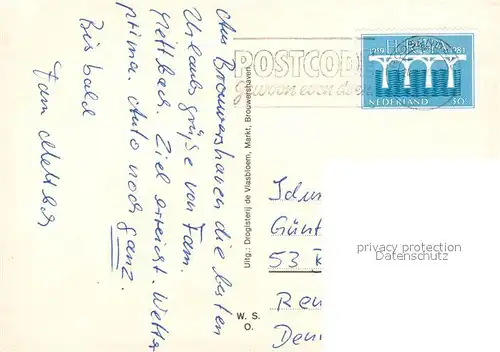 Aus Brouwershaven die besten
Urlaubsgrüße von Fam.
Mettbach. Ziel erreicht. Wetter
prima. Auto noch ganz.
Bis bald
Fam
Uitg.: Drogisterij de Vlasbloem, Markt, Brouwershaven
W. S.
O.
POSTCODE
gewoon even doen
1984
NEDERLAND
50
Günt
53
Ren
privacy protection
Datenschutz